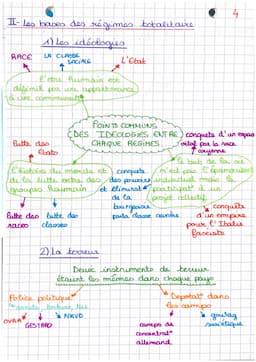 4
II- Les bases des régimes totalitaire
1) Les idéologies
RACE
LA CLASSE SOCIALE
L'Etat
L'être humain est
définit par une appartenance
à une communauté
POINTS COMMUNS
DES IDEOLOGIES ENTRE
CHAQUE REGIMES
conquête d'un espace
vital par la race
aryenne
lutte des
Etats
L'histoire du monde est
de la lutte entre des
groupes humain
conquête
des pouvoirs
et éliminat°
de la
bourgeoisie
par la classe ouvrière
le but de la vie
n'est pas l'épanouissement
individuel mais la
participat° à un
projet collectif
lutte des
races
lutte des
classes
conquête
d'un empire
pour l'Italie
fasciste
2) La terreur
Deux instruments de terreur
étaient les mêmes dans chaque pays
Police politique
Déportat° dans
les camps
OVRA
GESTAPO
NKVD
camps de
concentrat°
allemand
goulag
soviétique